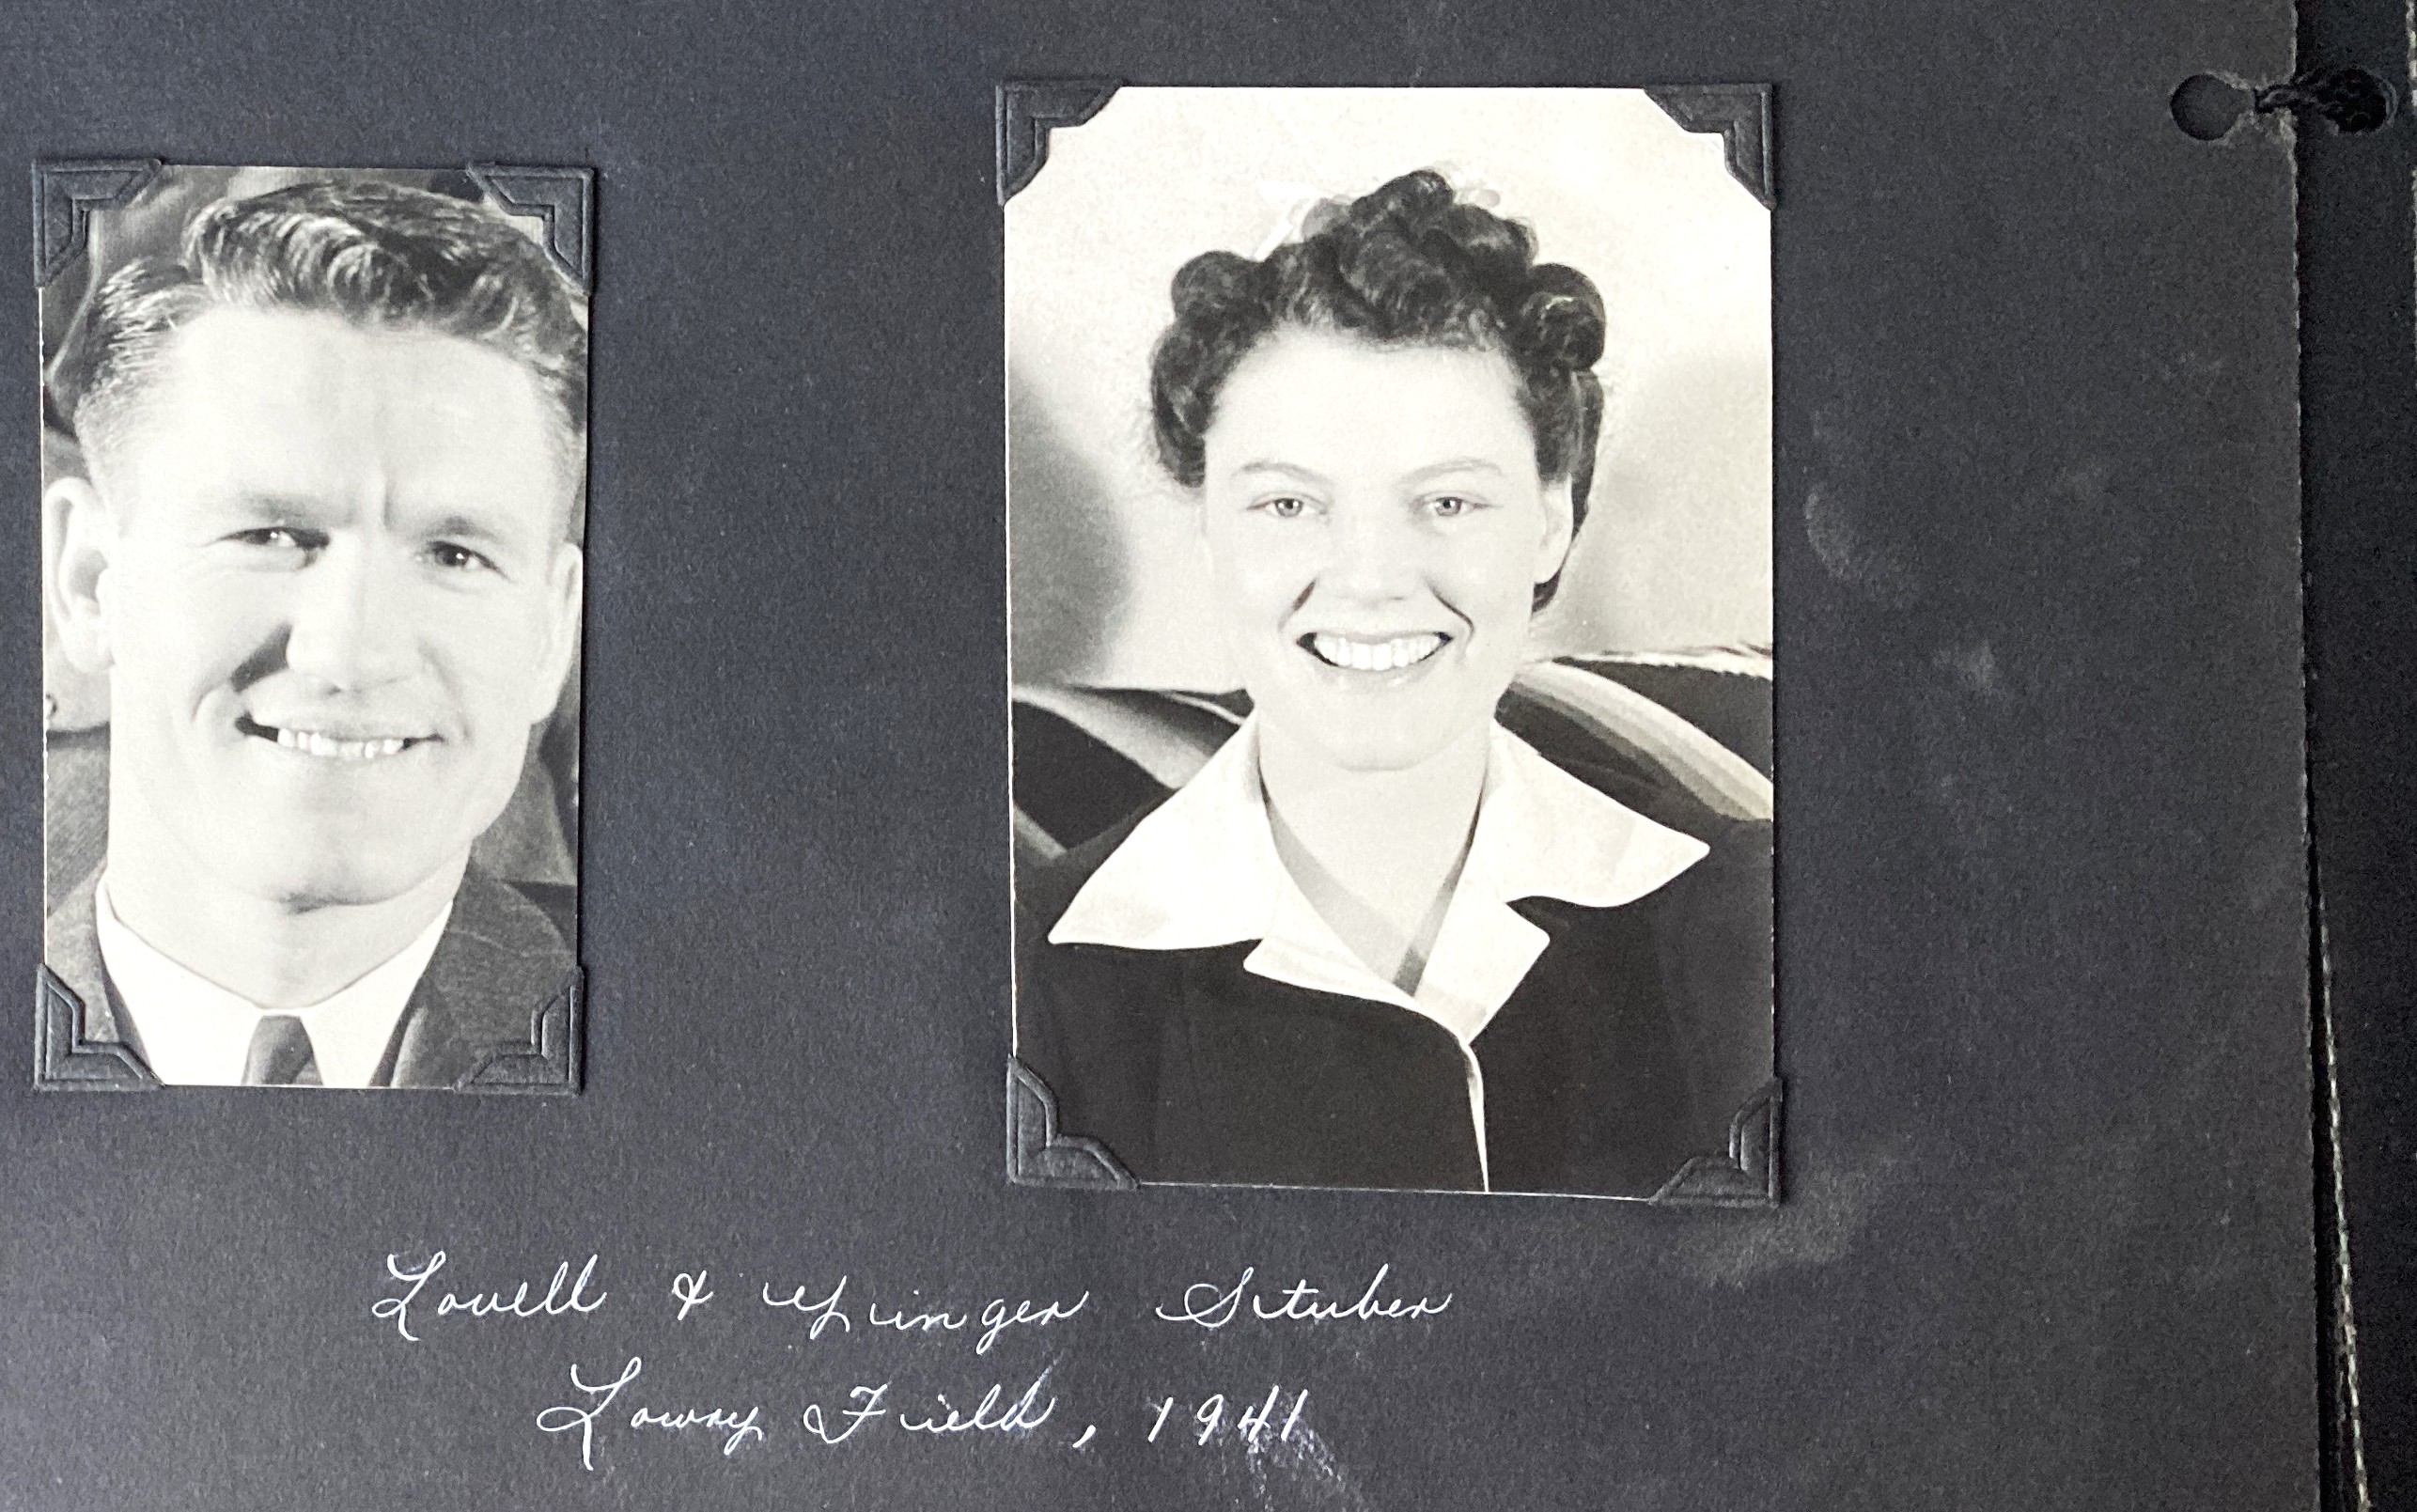 Lovell & Ginger Stuber
Lowry Field, 1941